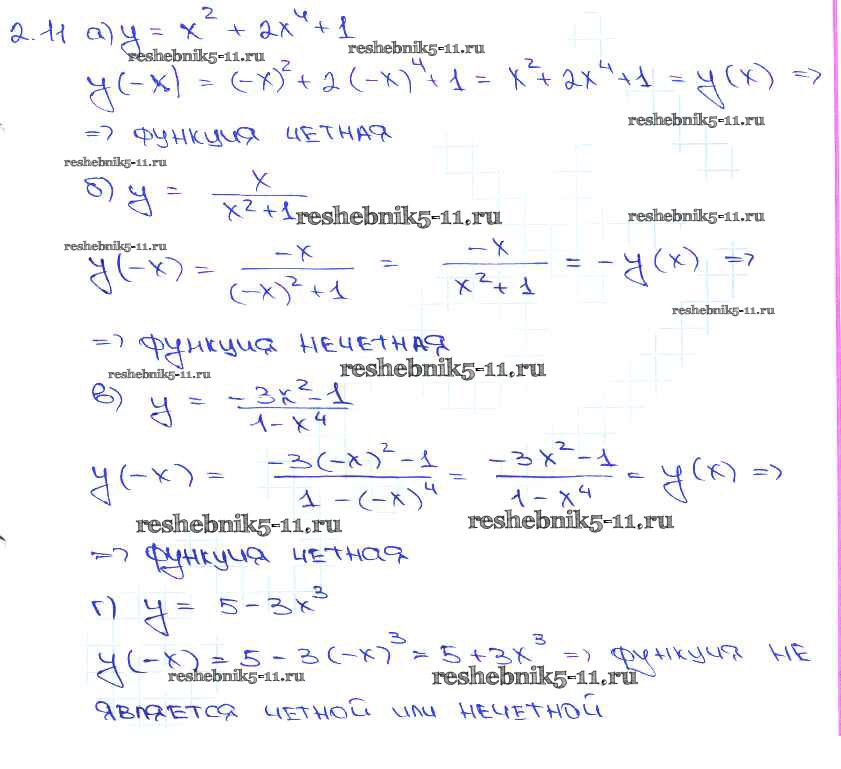 2.11 а) y = x² + 2x⁴ + 1
reshebnik5-11.ru reshebnik5-11.ru
y(-x) = (-x)² + 2(-x)⁴ + 1 = x² + 2x⁴ + 1 = y(x) =>
reshebnik5-11.ru
=> ФУНКЦИЯ ЧЕТНАЯ
reshebnik5-11.ru
б) y = x/(x² + 1)
reshebnik5-11.ru reshebnik5-11.ru
reshebnik5-11.ru
y(-x) = -x/((-x)² + 1) = -x/(x² + 1) = -y(x) =>
reshebnik5-11.ru
=> ФУНКЦИЯ НЕЧЕТНАЯ
reshebnik5-11.ru
reshebnik5-11.ru
в) y = (-3x² - 1)/(1 - x⁴)
y(-x) = (-3(-x)² - 1)/(1 - (-x)⁴) = (-3x² - 1)/(1 - x⁴) = y(x) =>
reshebnik5-11.ru reshebnik5-11.ru
=> ФУНКЦИЯ ЧЕТНАЯ
г) y = 5 - 3x³
y(-x) = 5 - 3(-x)³ = 5 + 3x³ => ФУНКЦИЯ НЕ
reshebnik5-11.ru reshebnik5-11.ru
ЯВЛЯЕТСЯ ЧЕТНОЙ ИЛИ НЕЧЕТНОЙ